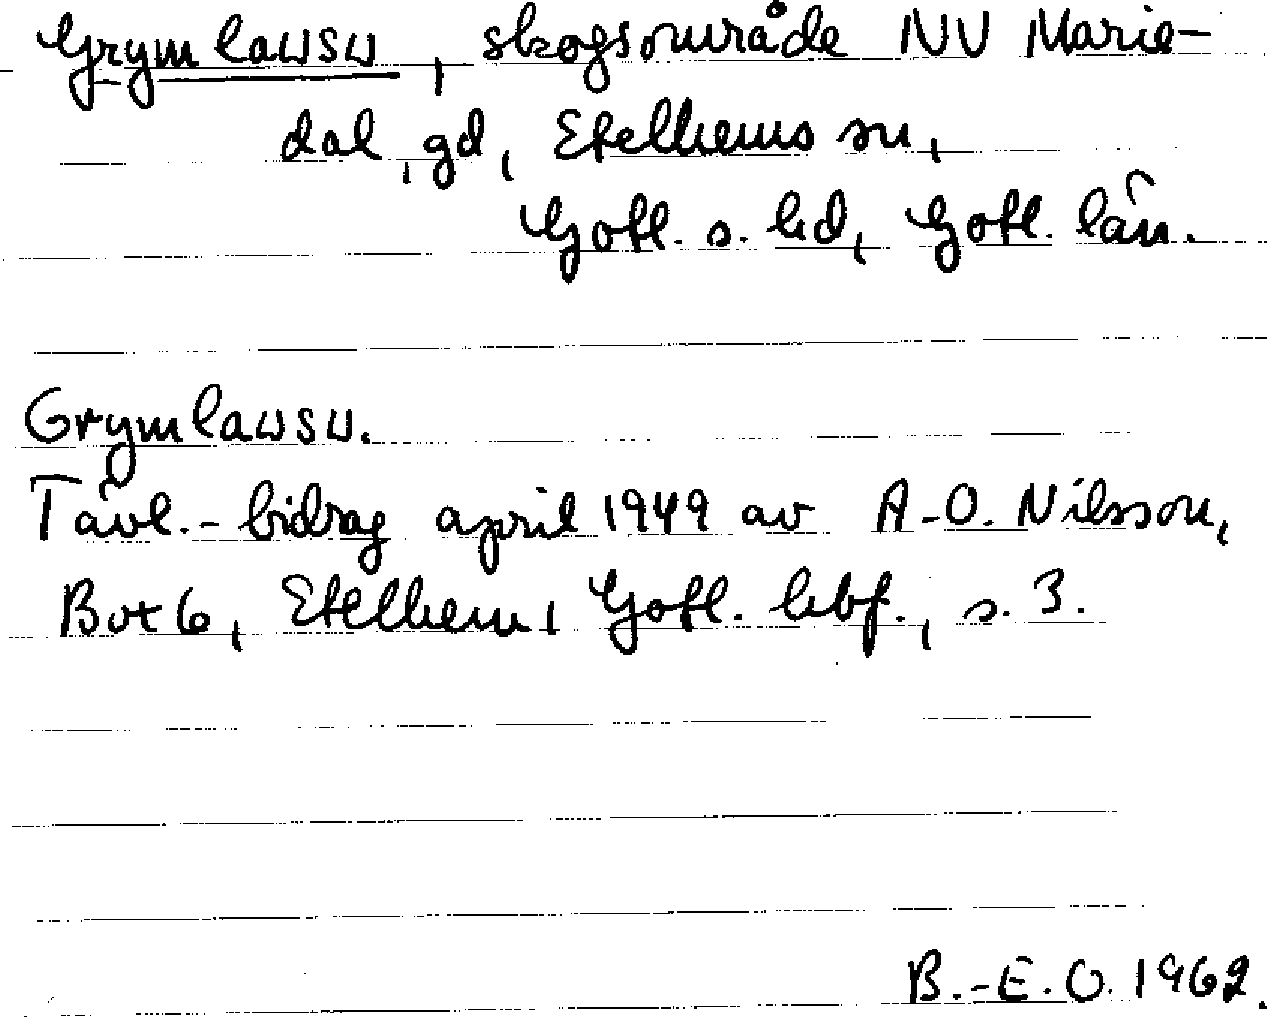 Grymlausu, skogsområde NV Marie-
dal, gd, Etelhems sn,
Gotl. s. hd, Gotl. län.
Grymlausu.
Tävl.-bidrag april 1949 av A-O. Nilsson,
Box 6, Etelhem, Gotl. hbf., s. 3.
B.-E.O. 1962.